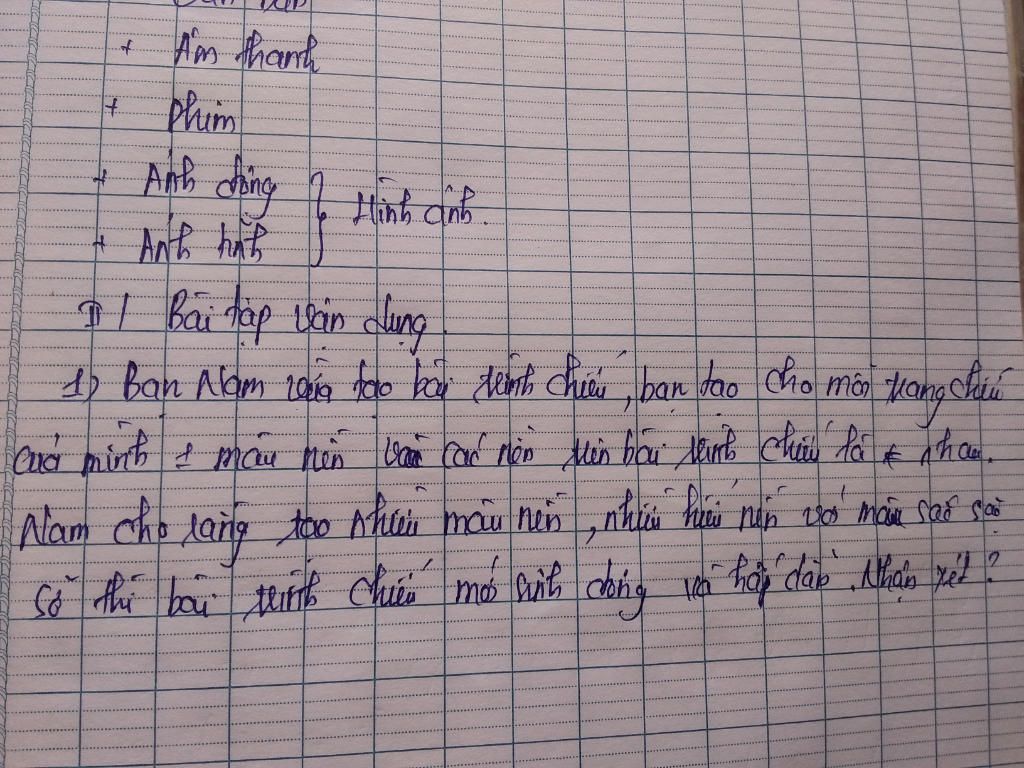 + Âm thanh
+ phim
+ Ảnh động } Hình ảnh.
+ Ảnh tĩnh
II / Bài tập vận dụng.
1) Bạn Nam vừa tạo bài trình chiếu, bạn tạo cho mỗi trang chiếu
của mình 1 màu nền và các nền trên bài trình chiếu là ≠ nhau.
Nam cho rằng tạo nhiều màu nền, nhiều kiểu nền với màu sắc sặc
sỡ thì bài trình chiếu mới sinh động và hấp dẫn. Nhận xét?